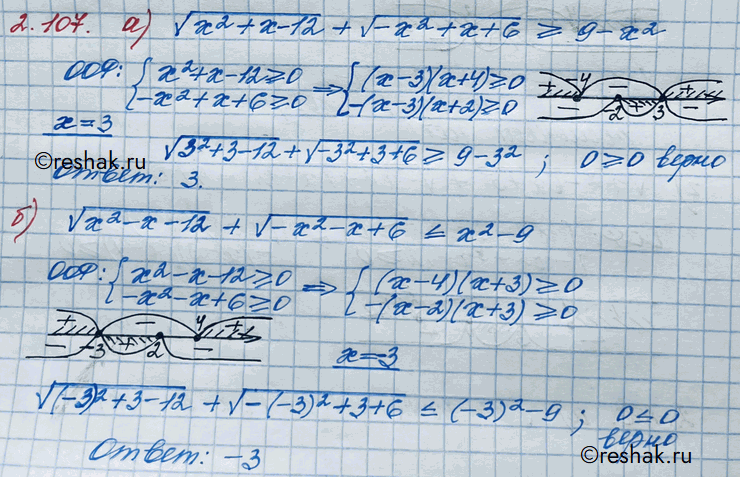 2.107. а) √(x²+x-12) + √(-x²+x+6) ≥ 9-x²
ООФ: { x²+x-12≥0 ⇒ { (x-3)(x+4)≥0
{ -x²+x+6≥0 { -(x-3)(x+2)≥0
+ -4 - 2 + 3 + -
x=3
√(3²+3-12) + √(-3²+3+6) ≥ 9-3² ; 0≥0 верно
©reshak.ru
Ответ: 3.
б) √(x²-x-12) + √(-x²-x+6) ≤ x²-9
ООФ: { x²-x-12≥0 ⇒ { (x-4)(x+3)≥0
{ -x²-x+6≥0 { -(x-2)(x+3)≥0
+ - 4 +
- -3 + 2 -
x=-3
√((-3)²+3-12) + √(-(-3)²+3+6) ≤ (-3)²-9 ; 0≤0
верно
Ответ: -3
©reshak.ru